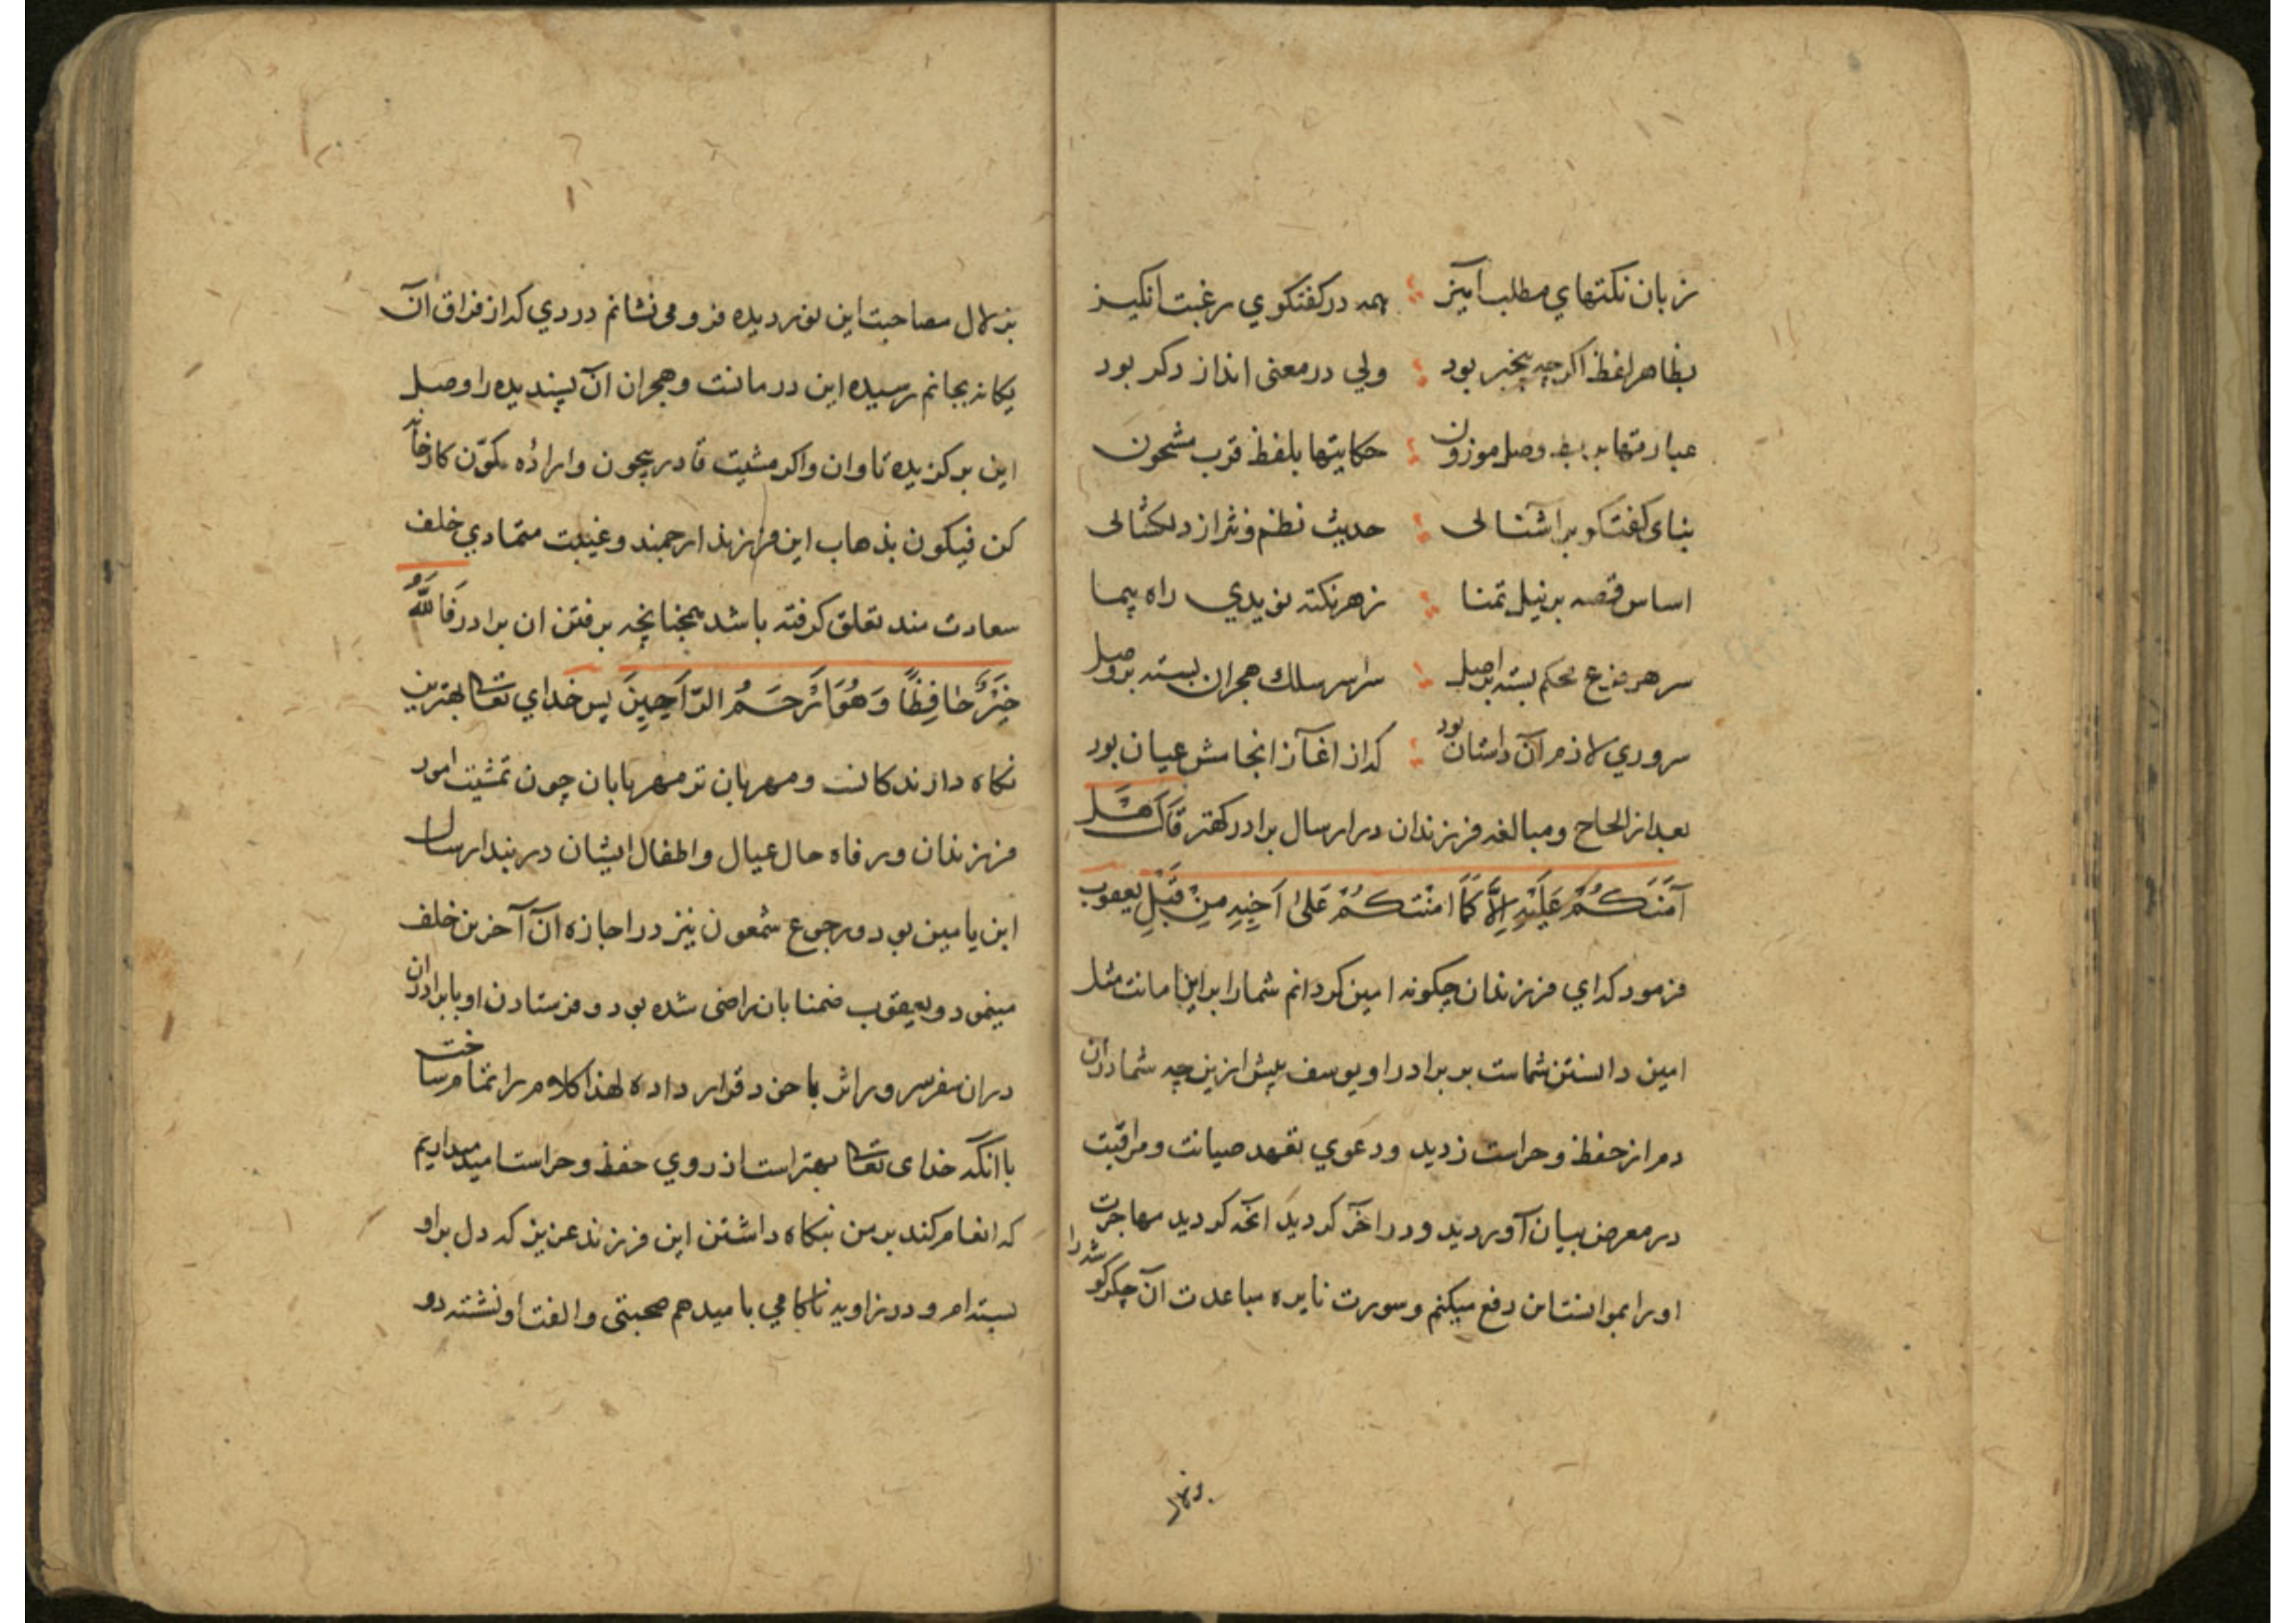 زبان نکتهای مطلب آمیز همه در کفتکوی رغبت انکیز
بظاهر لفظ اکرچه بیخبر بود ولی در معنی انداز دکر بود
عبارتها به وصل موزون حکایتها بلفظ قرب مشحون
بنای کفتکو بر اشنائی حدیث نظم و نثر از دلکشائی
اساس قصه بر نیل تمنا زهر نکته نویدی راه پیما
سر هر مصرع محکم بسته بر اصل سراسر سلك هجران بسته بر وصل
سروری لازم آن داستان بود که از اغاز انجامش عیان بود
بعد از الحاح و مبالغه فرزندان در ارسال برادر کهتر قَالَ هَلْ
آمَنُكُمْ عَلَيْهِ اِلَّا كَمَا امِنْتُكُمْ عَلىٰ اَخِيهِ مِنْ قَبْلُ یعقوب
فرمود که ای فرزندان چکونه امین کردانم شما را بر این امانت مثل
امین دانستن شماست بر برادر او یوسف پیش ازین چه شما در آن
دم از حفظ و حراست زدید و دعوی تعهد صیانت و مراقبت
در معرض بیان آوردید و در اخر کردید انچه کردید مهاجرت
او را بموانست این دفع میکنم و سورت نایره مباعدت آن جکر کوشه را
بزلال
بزلال مصاحبت این نور دیده فرو می نشانم دردی که از فراق آن
یکانه بجانم رسیده این درمانست و هجران آن پسندیده را وصل
این برکزیده تاوان و اکر مشیت قادر بیچون و اراده مکوّن کارخانه
کن فیکون بذهاب این فرزند ارجمند و غیبت متمادی خلف
سعادت مند تعلق کرفته باشد همچنانچه برفتن ان برادر فَاللّٰهُ
خَيْرٌ حَافِظًا وَهُوَ اَرْحَمُ الرَّاحِمِينَ پس خدای تعالی بهترین
نکاه دارندکانست و مهربان تر مهربانان چون تمشیت امور
فرزندان و رفاه حال عیال و اطفال ایشان در بند ارسال
ابن یامین بود و رجوع شمعون نیز در اجازه آن آخرین خلف
مینمود و یعقوب ضمنا بان راضی شده بود و فرستادن او با برادران
در ان سفر سر و راش با خود قرار داده لهذا کلام را تمام ساخت
با انکه خدای تعالی بهتر است از روی حفظ و حراست امید میداریم
که انعام کند بر من بنکاه داشتن این فرزند عزیز که دل بر او
بسته ام و در زاویه ناکامی بامید هم صحبتی و الفت او نشسته دو